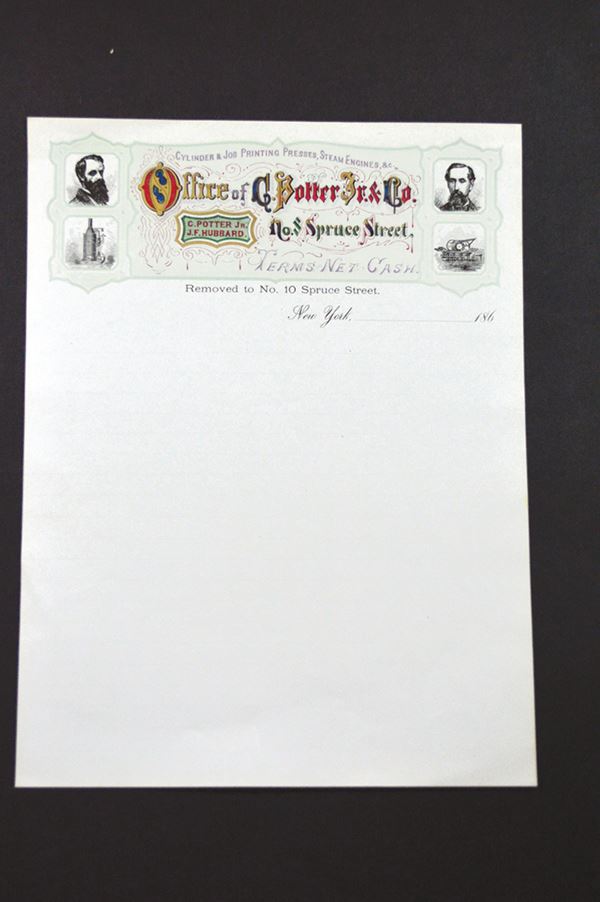 Cylinder & Job Printing Presses, Steam Engines, &c.
Office of C. Potter Jr. & Co.
C. POTTER JR.
J. F. HUBBARD.
No. 8 Spruce Street,
Terms Net Cash.
Removed to No. 10 Spruce Street.
New York, 186